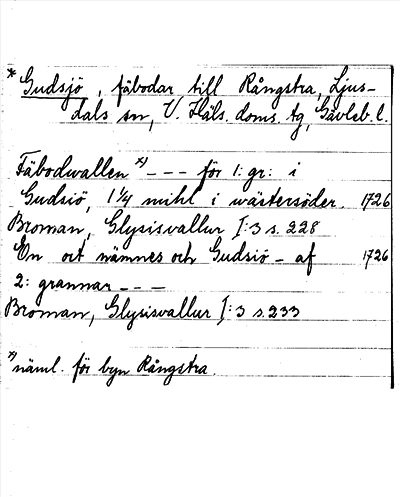 * Gudsjö, fäbodar till Rångstra, Ljus-
dals sn, V. Häls. doms. tg, Gävleb. l.
Fäbodwallen x) - - - för 1: gr: i
Gudsiö, 1 1/4 mihl i wästersöder. 1726
Broman, Glysisvallur I:3 s. 228
En ort nämnes och Gudsiö - af 1726
2: grannar - - -
Broman, Glysisvallur I:3 s. 233
x) näml. för byn Rångstra.